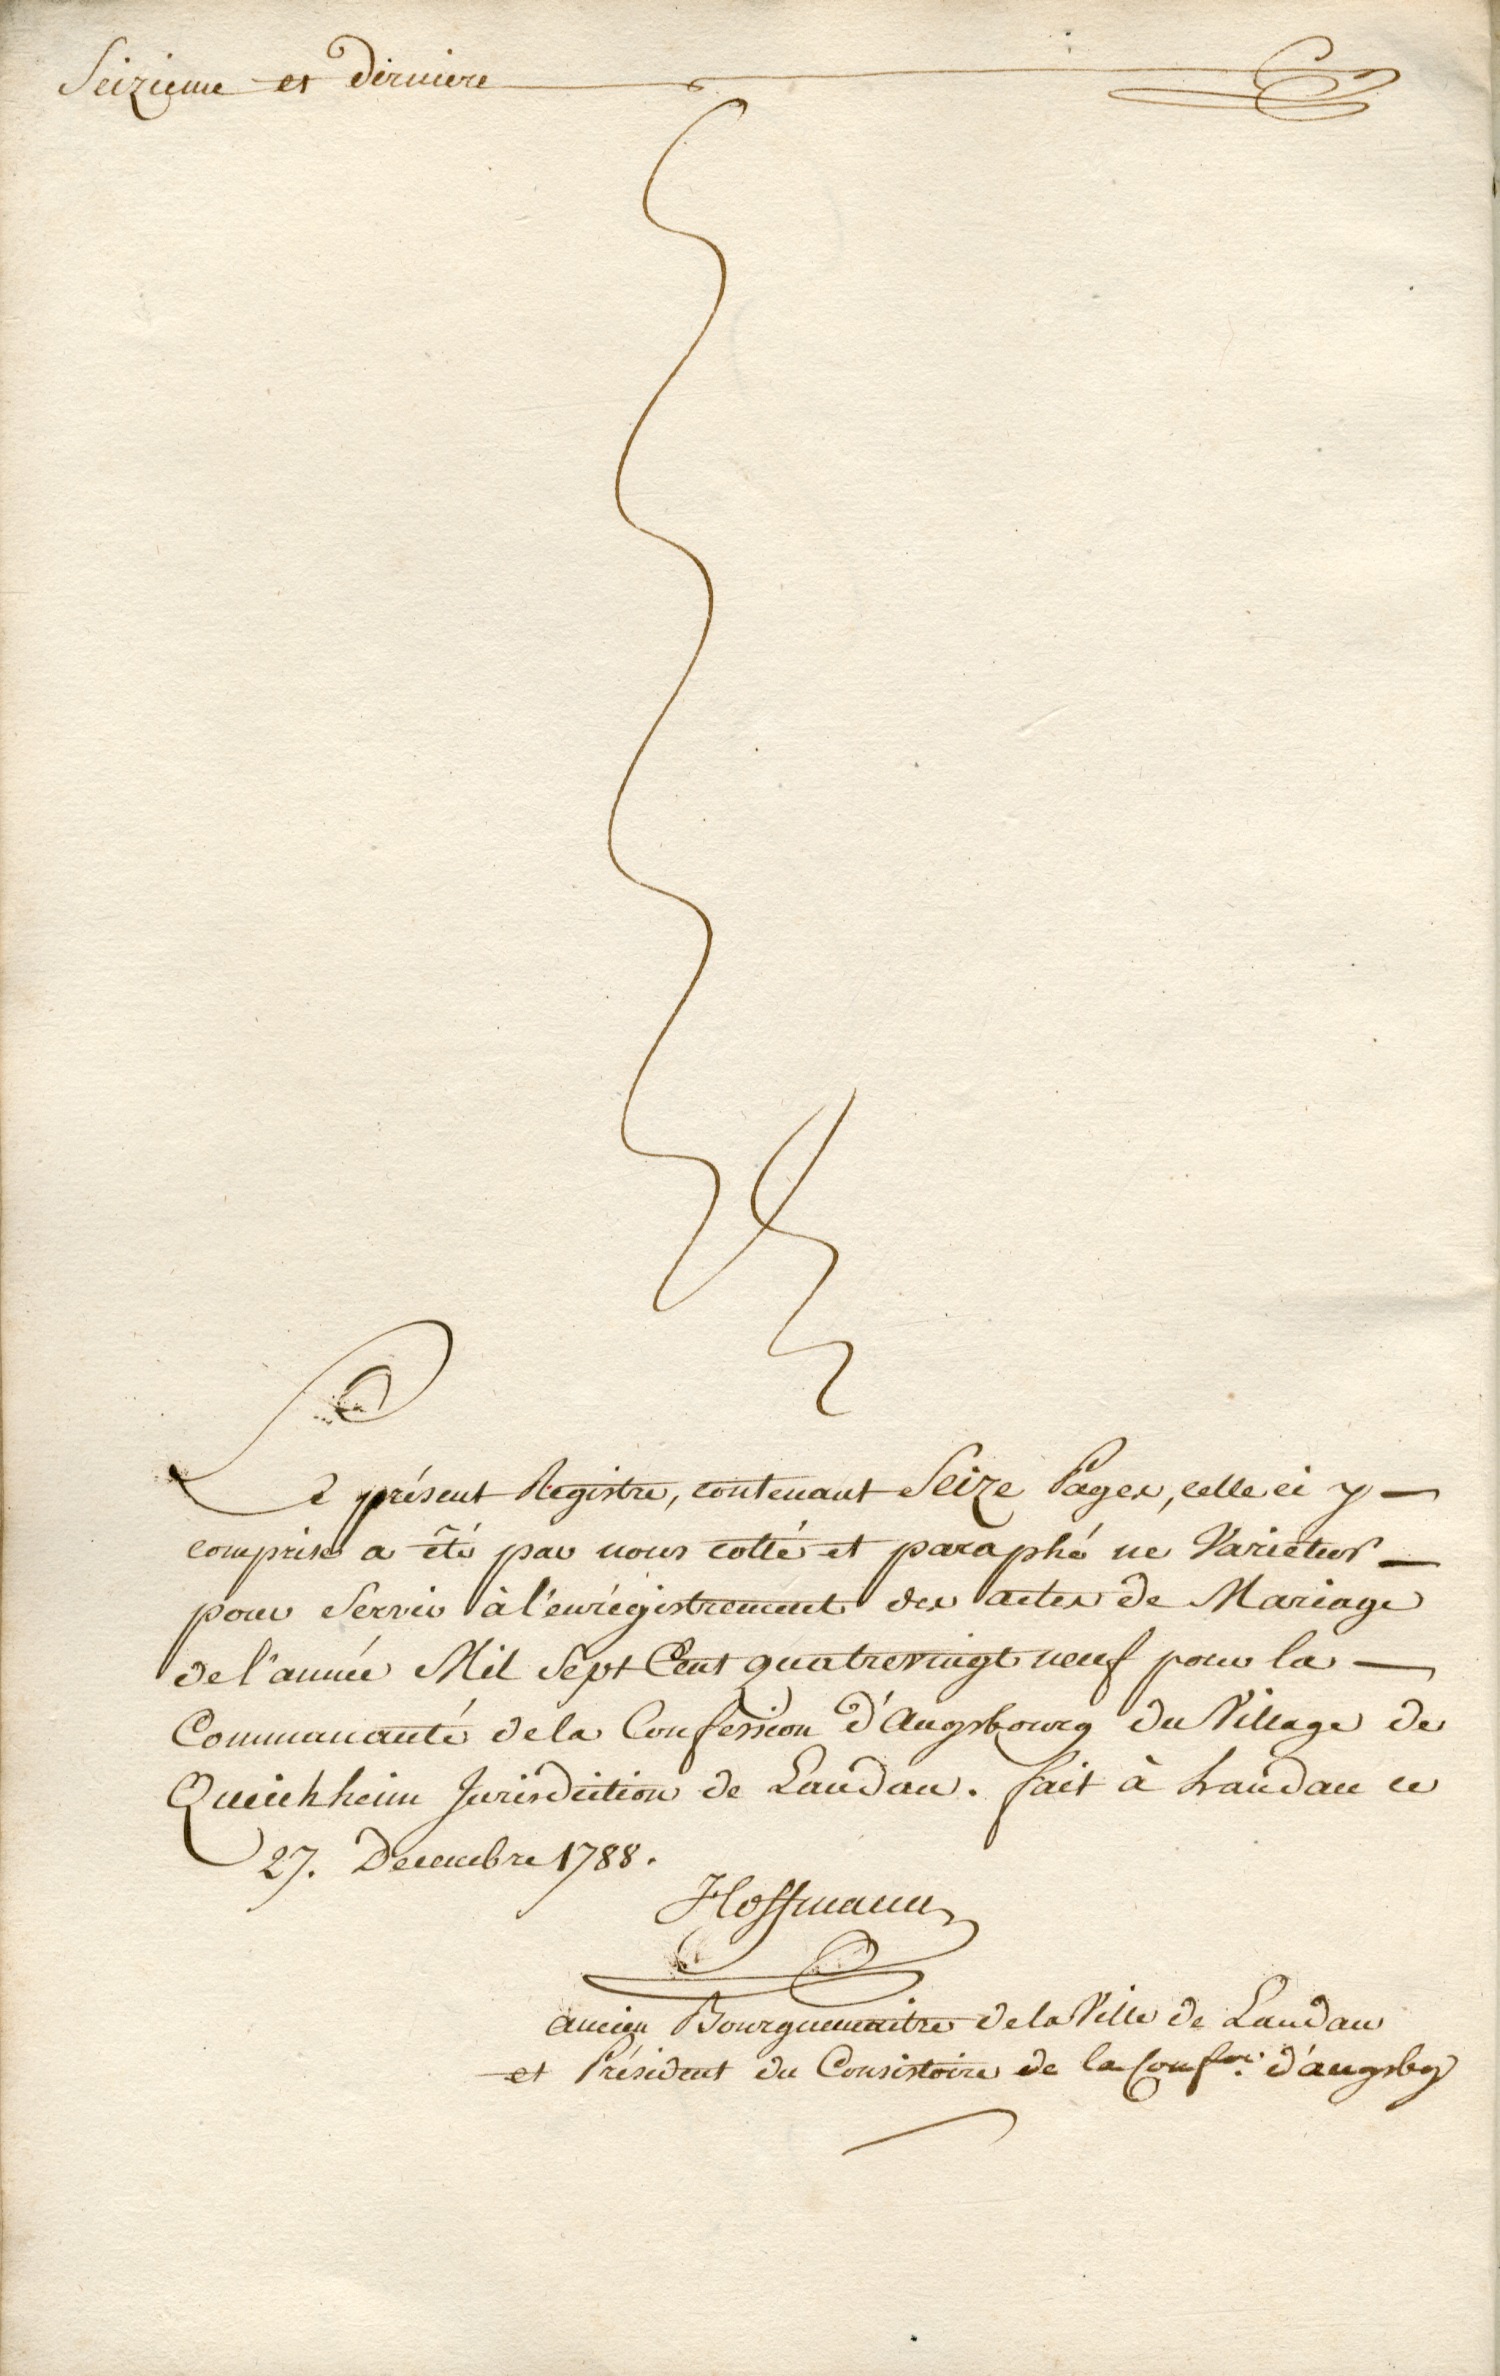 Seizieme et derniere
Le présent Registre, contenant Seize Pages, celle ci y
comprise a été par nous cotté et paraphé ne Varietur
pour Servir à l'enrégistrement des actes de Mariage
de l'année Mil Sept Cent quatrevingt neuf pour la
Communauté de la Confession d'Augsbourg du Village de
Queichheim Jurisdiction de Landau. fait à Landau ce
27. Decembre 1788.
Hoffmann
ancien Bourguemaitre de la Ville de Landau
et Président du Consistoire de la Conf.on d'augsbg